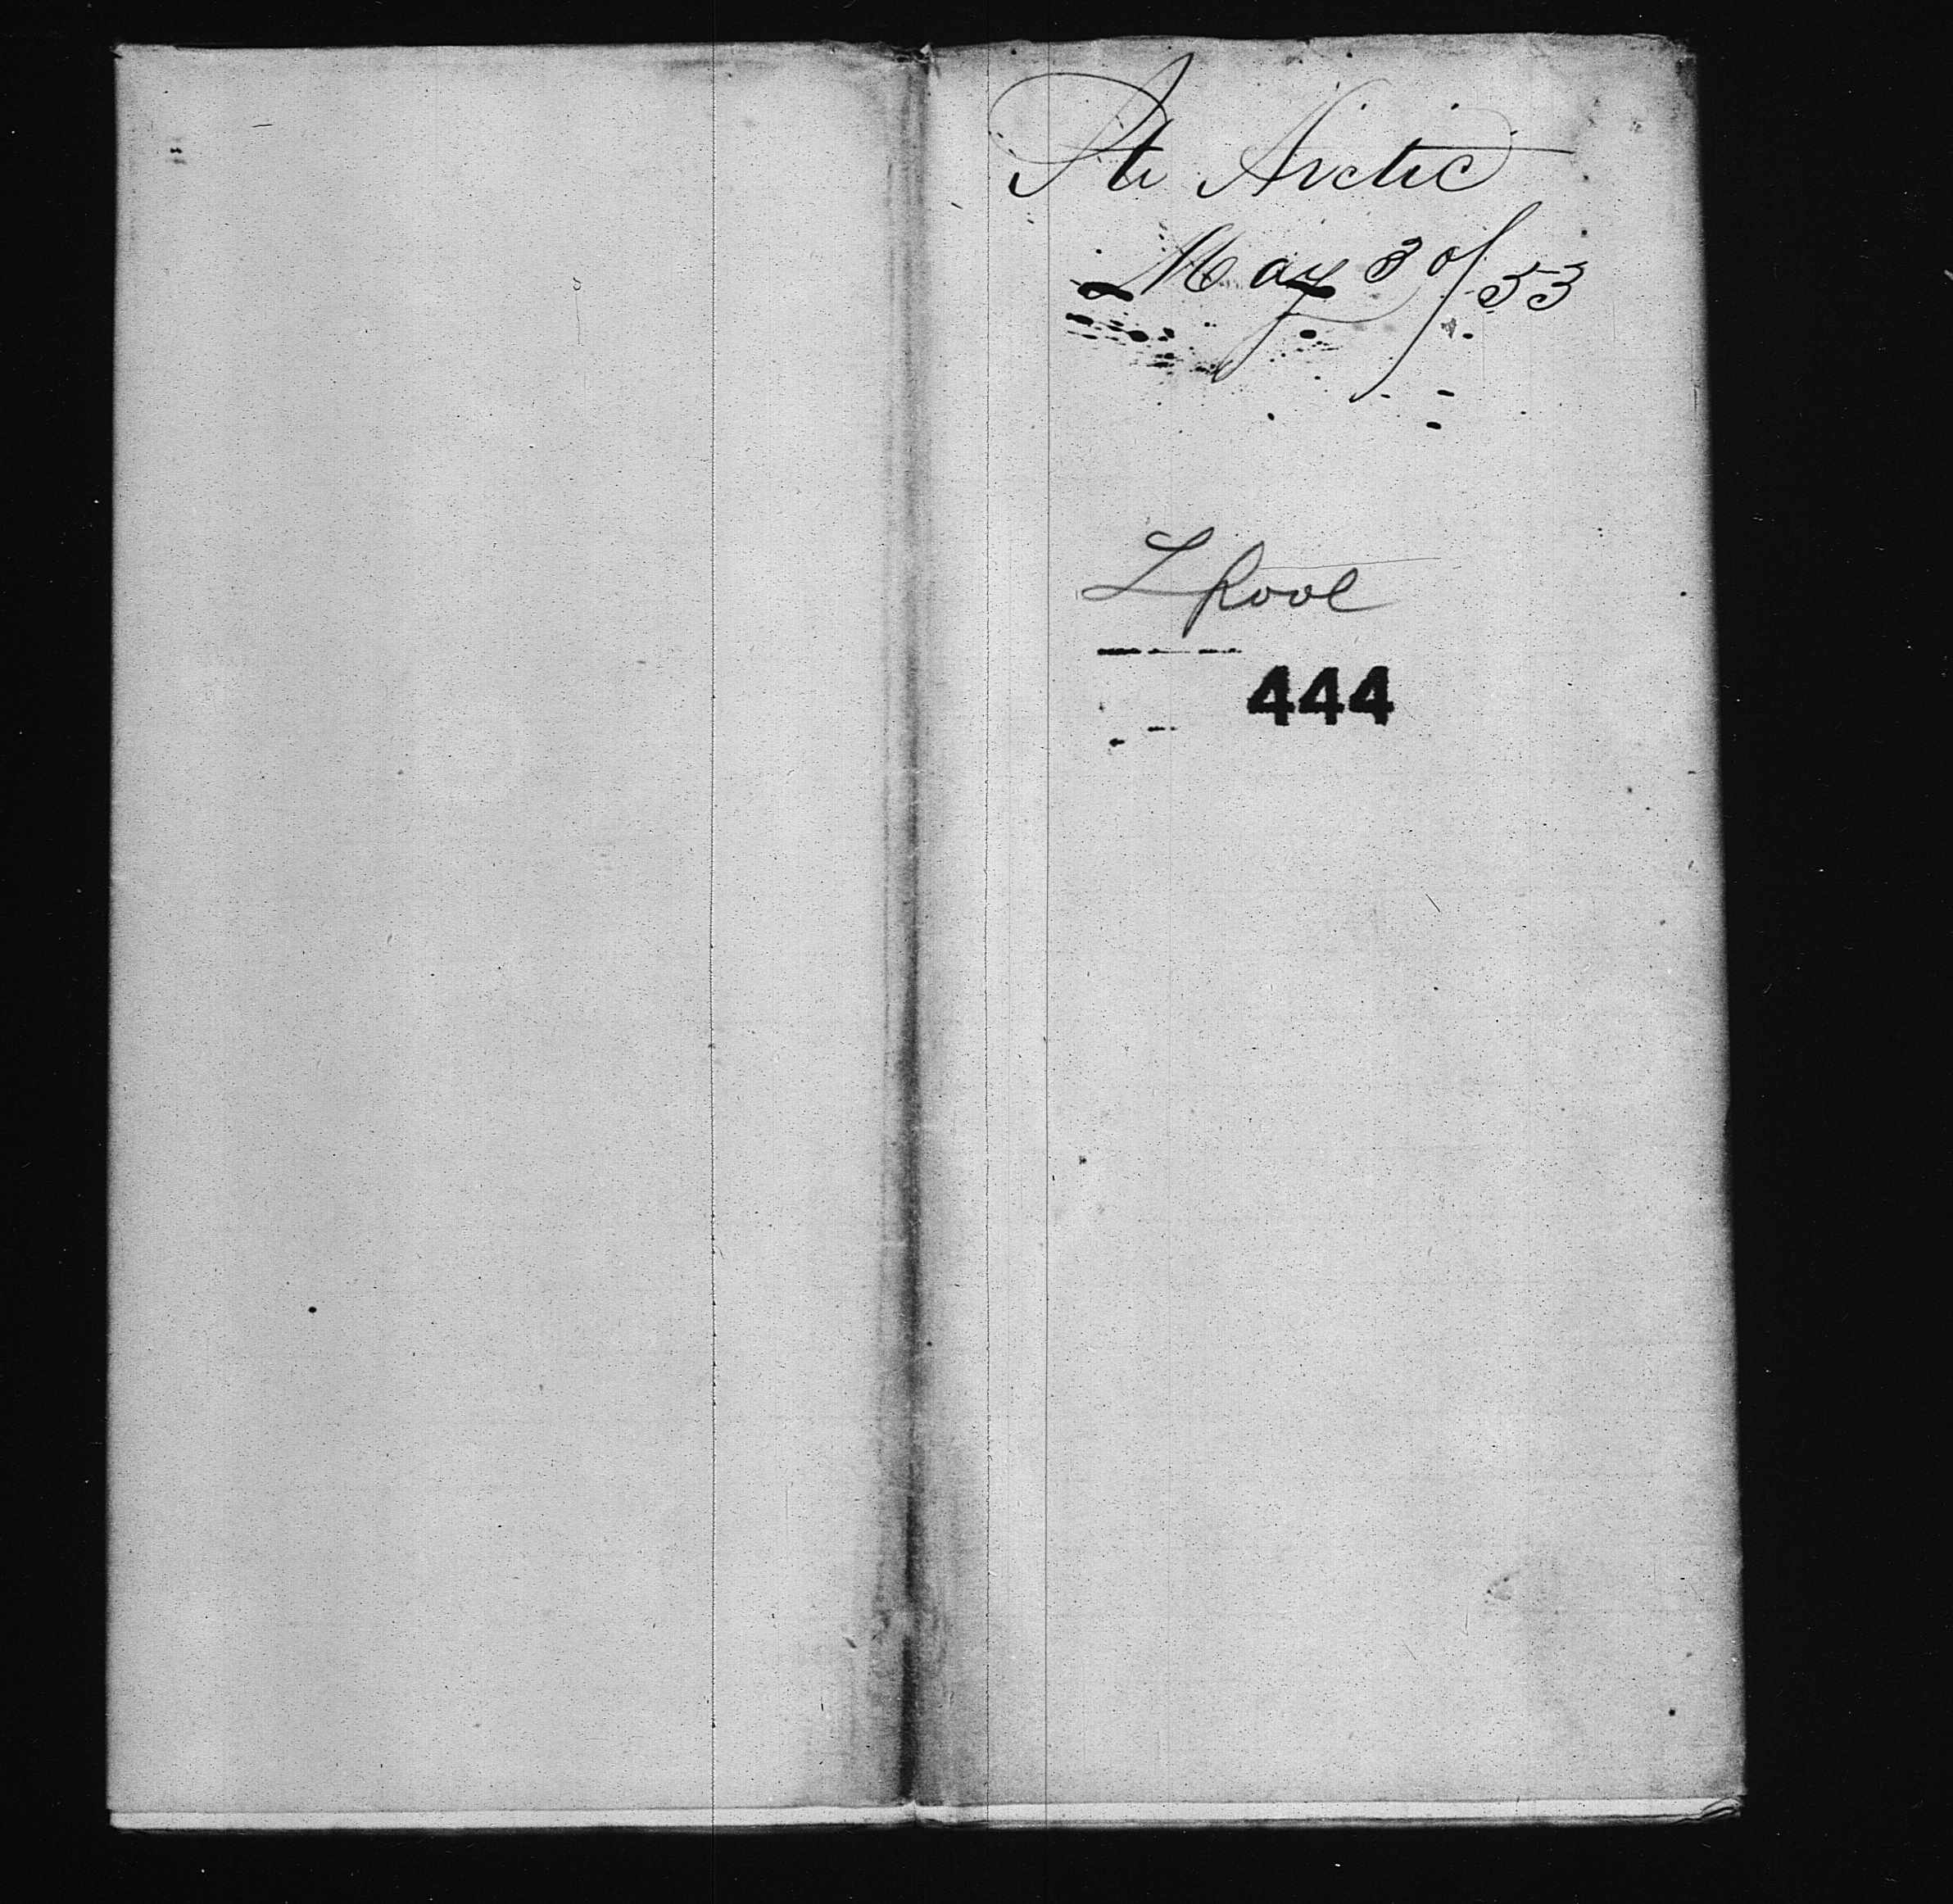 Str Arctic
May 30/53
Lpool
444